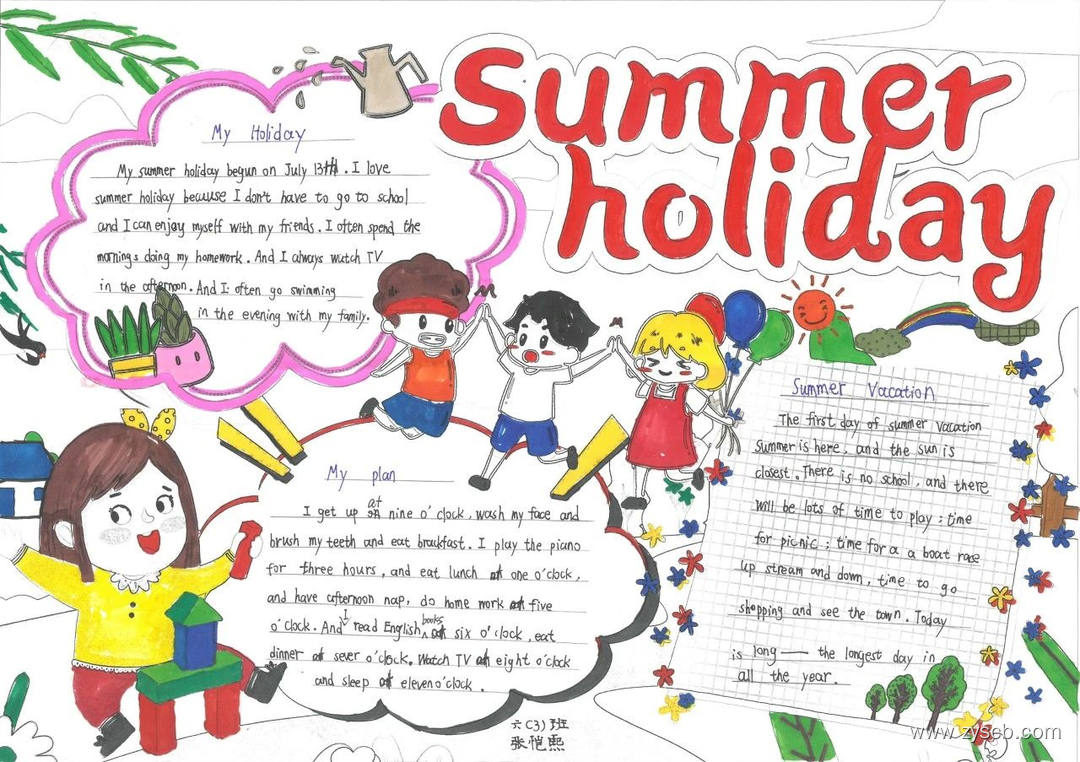 Summer
holiday
My Holiday
My summer holiday begun on July 13th. I love
summer holiday because I don't have to go to school
and I can enjoy myself with my friends. I often spend the
mornings doing my homework. And I always watch TV
in the afternoon. And I often go swimming
in the evening with my family.
My plan
I get up at nine o'clock, wash my face and
brush my teeth and eat breakfast. I play the piano
for three hours, and eat lunch at one o'clock,
and have afternoon nap, do home work at five
o'clock. And I read English books at six o'clock, eat
dinner at sever o'clock. Watch TV at eight o'clock
and sleep at eleven o'clock.
Summer Vacation
The first day of summer vacation
summer is here, and the sun is
closest. There is no school, and there
will be lots of time to play; time
for picnic; time for a a boat race
up stream and down, time to go
shopping and see the town. Today
is long — the longest day in
all the year.
六(3)班
张恺熙
www.zyseb.com